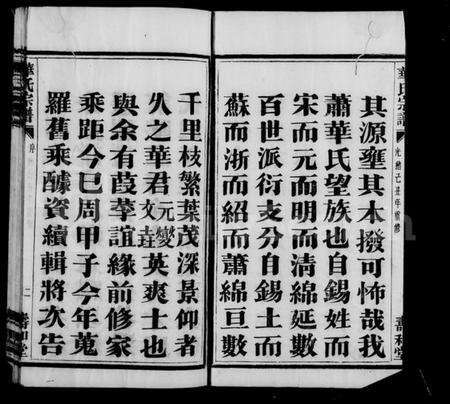 其源壅其本撥可怖哉我
蕭華氏望族也自錫姓而
宋而元而明而清綿延數
百世派衍支分自錫土而
蘇而浙而紹而蕭綿亘數
千里枝繁葉茂深景仰者
久之華君元燮文垚英爽士也
與余有葭莩誼緣前修家
乘距今已周甲子今年蒐
羅舊乘醵資續輯將次告
華氏宗譜
光緒己丑年重修
壽和堂
華氏宗譜
序
二
壽和堂